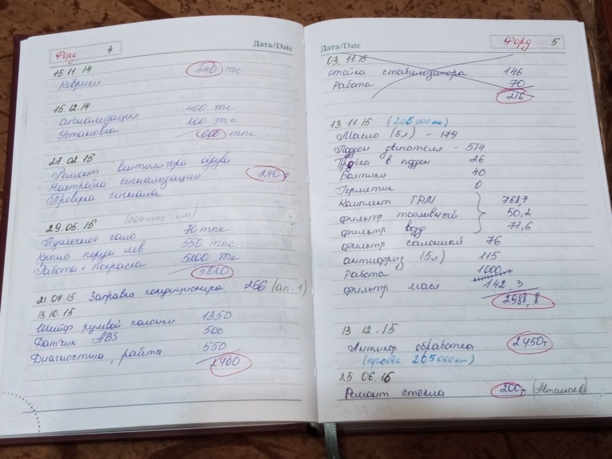 Форд 4 Дата/Date
15.11.14
Коврики 440 тыс
15.12.14
Сигнализация 400 тыс
Установка 200 тыс
600 тыс
27.02.15
Ремонт вентилятора обдува
Настройка сигнализации 240
Проверка сигнала
29.05.15
70 тыс
Крыло перед лев 550 тыс
Работа + покраска 5200 тыс
5820
21.07.15 Заправка кондиционера 266
13.10.15
Шлейф рулевой колонки 1350
Датчик ABS 500
Диагностика, работа 550
2400
Дата/Date Форд 5
03.11.15
стойка стабилизатора 146
Работа 70
216
13.11.15 (205000км)
Масло (5л) - 179
Поддон двигателя - 574
Пробка в поддон 26
Болтики 40
Герметик 0
Комплект ГРМ 768,7
фильтр топливный 50,2
фильтр возд 71,6
фильтр салонный 76
антифриз (5л) 115
Работа 1000
фильтр масл 142,3
2988,8
13 12.15
Антикор обработка 2450т
(пробег 205000км)
25 06.16
Ремонт стекла 200т